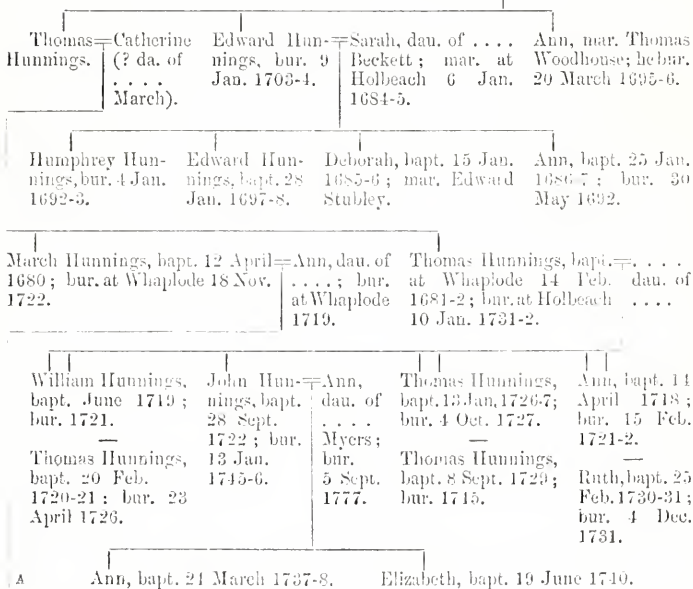 Thomas=Catherine
Hunnings. (? da. of
. . . .
March).
Edward Hun-
nings, bur. 9
Jan. 1703-4.
=Sarah, dau. of . . . .
Beckett; mar. at
Holbeach 6 Jan.
1684-5.
Ann, mar. Thomas
Woodhouse; he bur.
20 March 1695-6.
Humphrey Hun-
nings, bur. 4 Jan.
1692-3.
Edward Hun-
nings, bapt. 28
Jan. 1697-8.
Deborah, bapt. 15 Jan.
1685-6; mar. Edward
Stubley.
Ann, bapt. 25 Jan.
1686-7; bur. 30
May 1692.
March Hunnings, bapt. 12 April
1680; bur. at Whaplode 18 Nov.
1722.
=Ann, dau. of
. . . .; bur.
at Whaplode
1719.
Thomas Hunnings, bapt.
at Whaplode 14 Feb.
1681-2; bur. at Holbeach
10 Jan. 1731-2.
=. . . .
dau. of
. . . .
William Hunnings,
bapt. June 1719;
bur. 1721.
—
Thomas Hunnings,
bapt. 20 Feb.
1720-21; bur. 23
April 1726.
John Hun-
nings, bapt.
28 Sept.
1722; bur.
13 Jan.
1745-6.
=Ann,
dau. of
. . . .
Myers;
bur.
5 Sept.
1777.
Thomas Hunnings,
bapt. 13 Jan. 1726-7;
bur. 4 Oct. 1727.
—
Thomas Hunnings,
bapt. 8 Sept. 1729;
bur. 1745.
Ann, bapt. 14
April 1718;
bur. 15 Feb.
1721-2.
—
Ruth, bapt. 25
Feb. 1730-31;
bur. 4 Dec.
1731.
A Ann, bapt. 21 March 1737-8. Elizabeth, bapt. 19 June 1740.